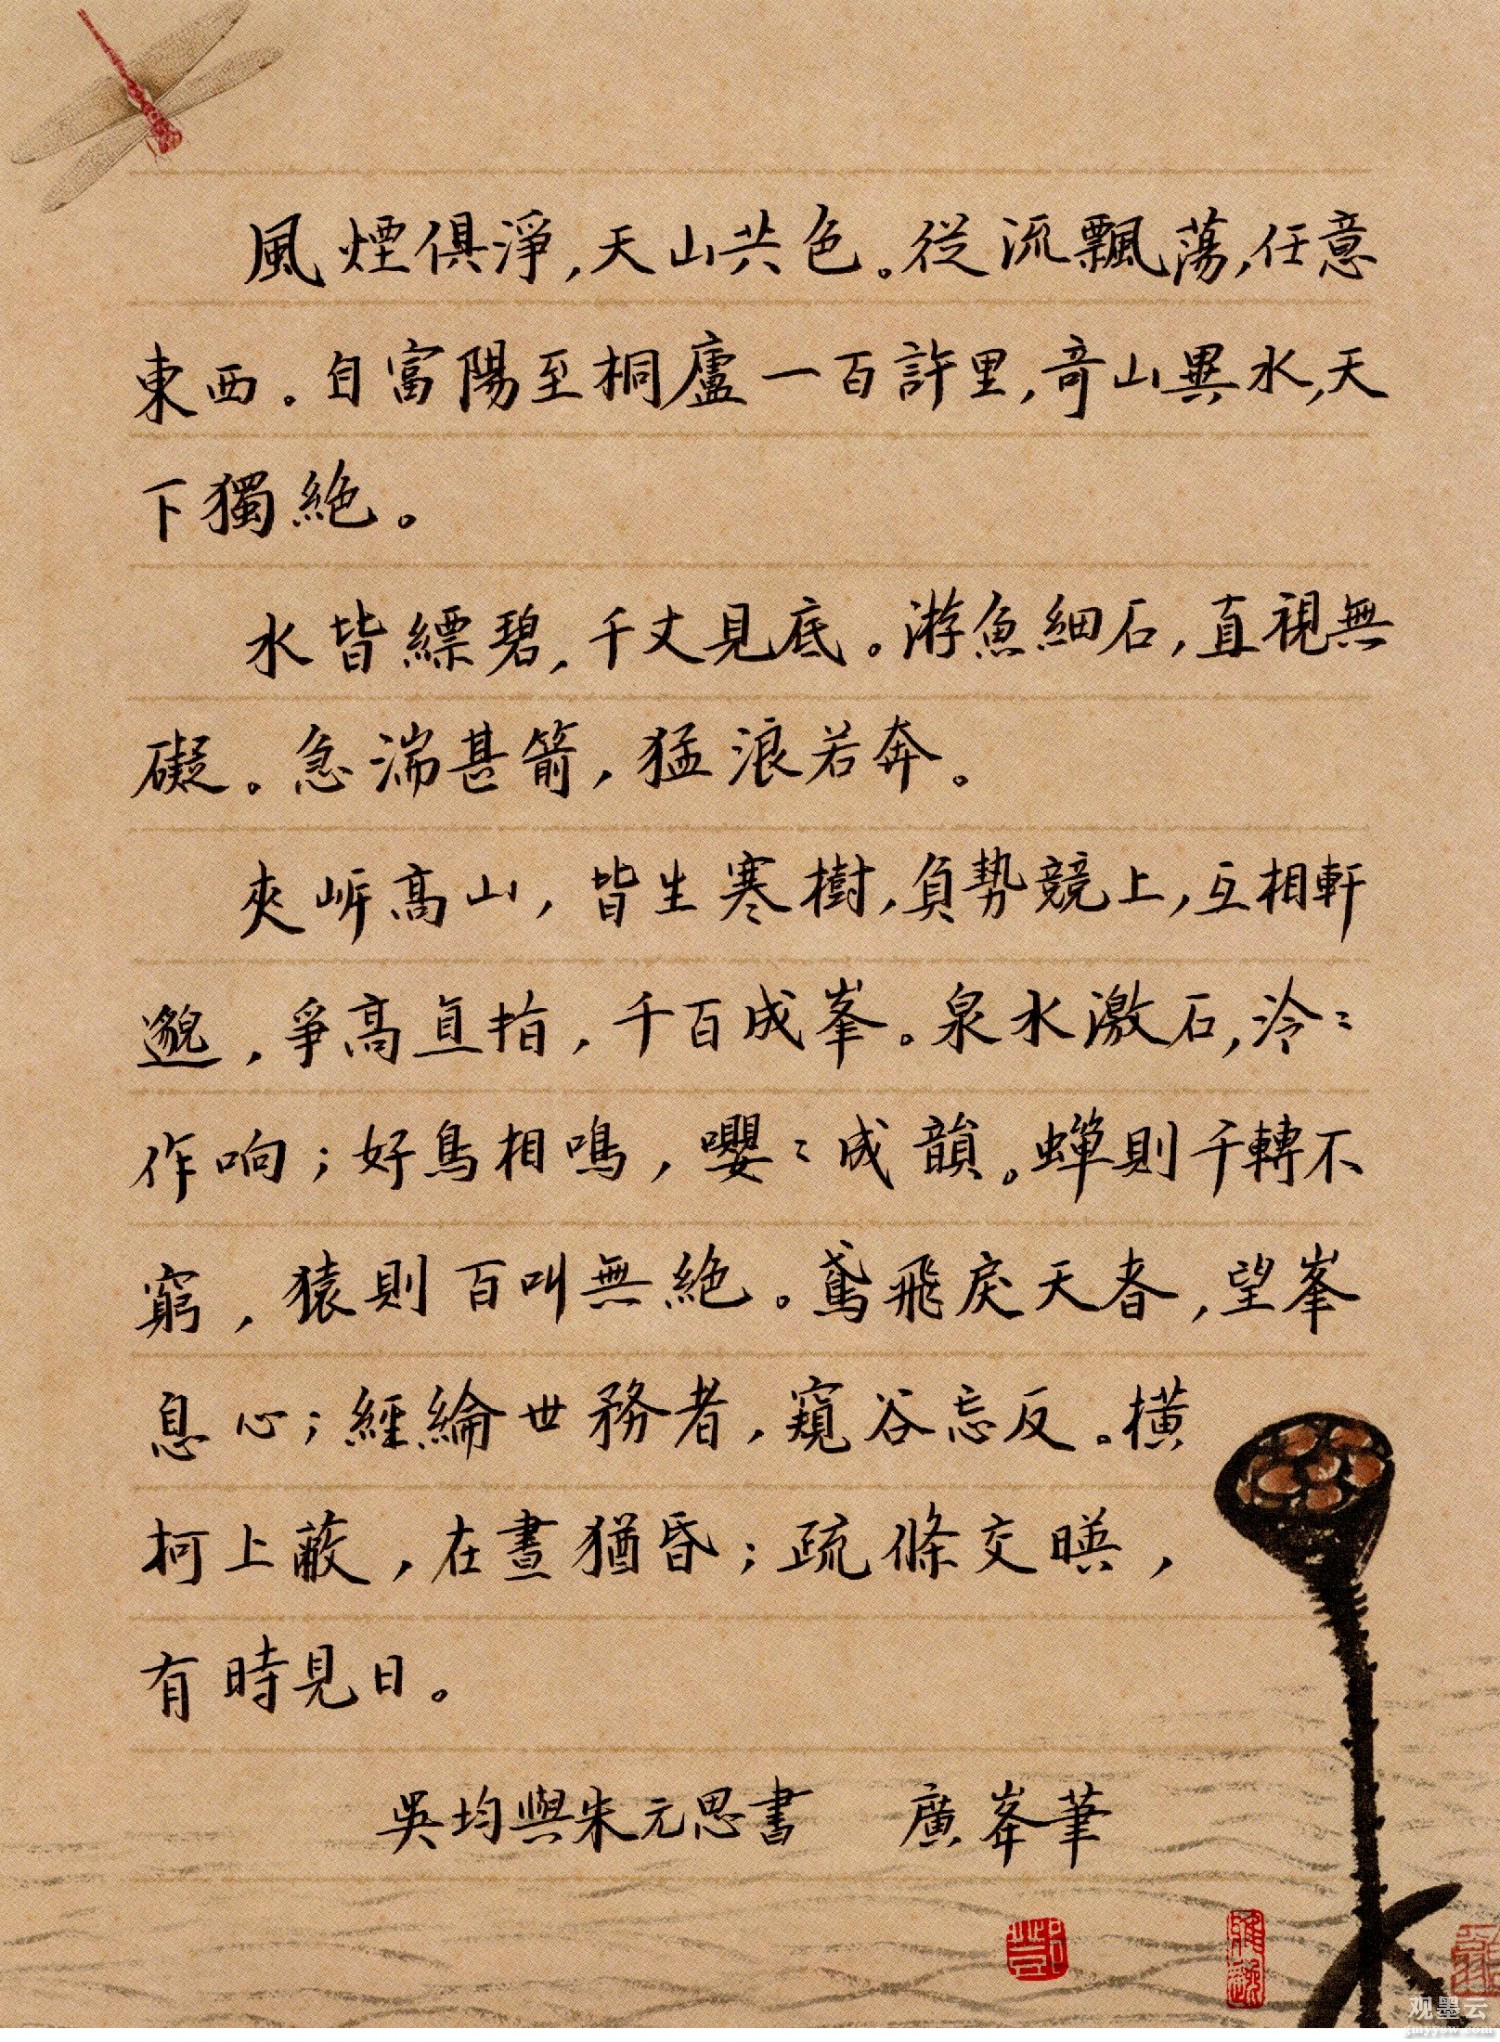 風煙俱淨,天山共色。從流飄蕩,任意
東西。自富陽至桐廬一百許里,奇山異水,天
下獨絕。
水皆縹碧,千丈見底。游魚細石,直視無
礙。急湍甚箭,猛浪若奔。
夾岸高山,皆生寒樹,負勢競上,互相軒
邈,爭高直指,千百成峯。泉水激石,泠〻
作响;好鳥相鳴,嚶〻成韻。蟬則千轉不
窮,猿則百叫無絕。鳶飛戾天者,望峯
息心;經綸世務者,窺谷忘反。橫
柯上蔽,在晝猶昏;疏條交暎,
有時見日。
吳均與朱元思書 廣峯筆
观墨云